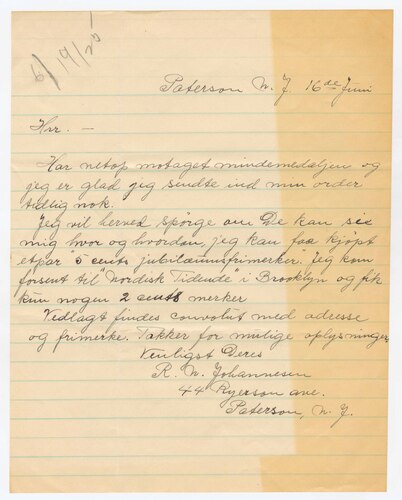 6/19/25
Paterson N. J. 16de Juni
Hrr. —
Har netop motaget mindemedaljen og
jeg er glad jeg sendte ind min order
tidlig nok.
Jeg vil herved spörge om De kan sie
mig hvor og hvordan jeg kan faa kjöpt
etpar 5 cents jubilæumsfrimerker. Jeg kom
forsent til "Nordisk Tidende" i Brooklyn og fik
kun nogen 2 cents merker
Vedlagt findes convolut med adresse
og frimerke. Takker for mulige oplysninger
Venligst Deres
R. N. Johannesen
44 Ryerson ave.
Paterson, N. J.